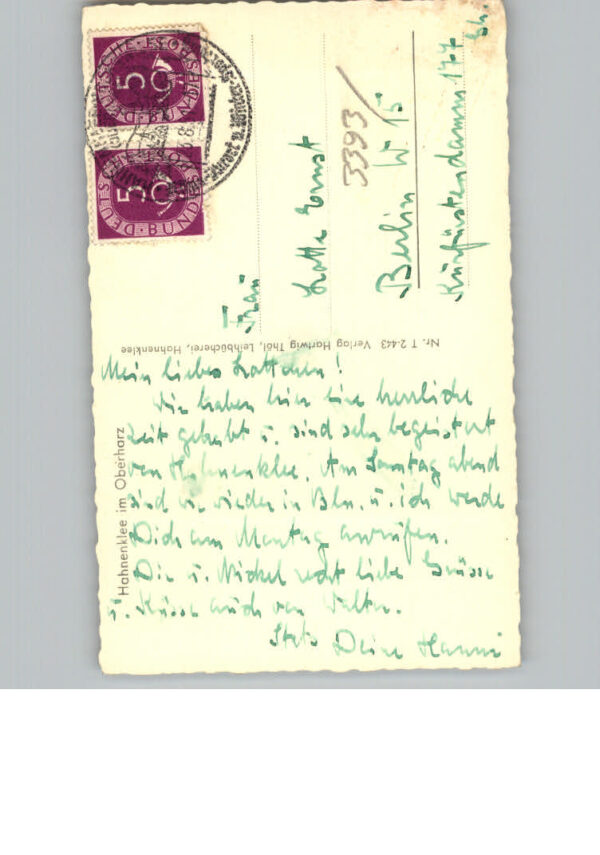 DEUTSCHE BUNDESPOST
5
DEUTSCHE BUNDESPOST
5
Frau
Lotte Ernst
3393/
Berlin W 15
Kurfürstendamm 177
Nr. T 2443 Verlag Hartwig Thöl, Leihbücherei, Hahnenklee
Hahnenklee im Oberharz
Mein liebes Lottchen!
Wir haben hier eine herrliche
Zeit gehabt u. sind sehr begeistert
von Hahnenklee. Am Sonntag abend
sind wir wieder in Bln. u. ich werde
Dich am Montag anrufen.
Dir u. Nickel recht liebe Grüsse
u. Küsse auch von Walter.
Stets Deine Hanni